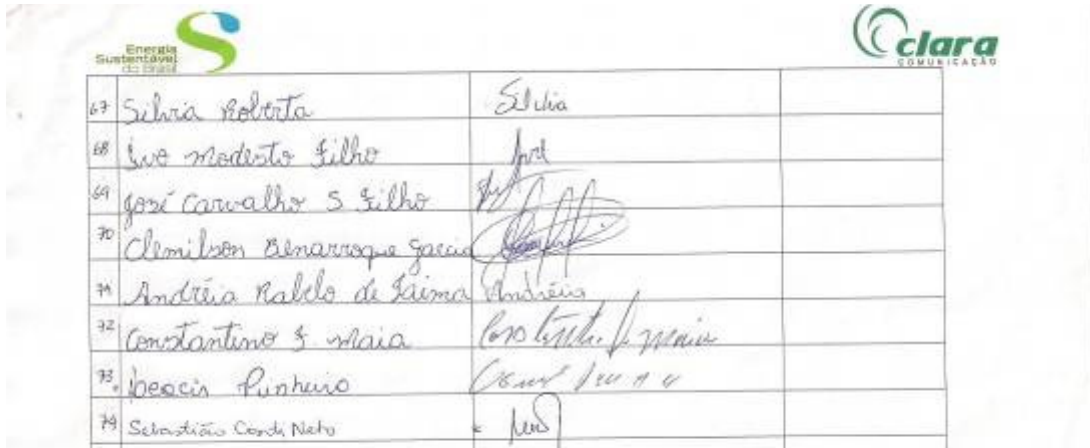 Energia
Sustentável
do Brasil
clara
COMUNICAÇÃO
67 Silvia Roberta Silvia
68 Ivo Modesto Filho
69 José Carvalho S Filho
70 Clemilson Benarroque Garcia
71 Andréia Rabelo de Andréia
72 Constantino F. Maia
73 Pinheiro
74 Sebastião Neto